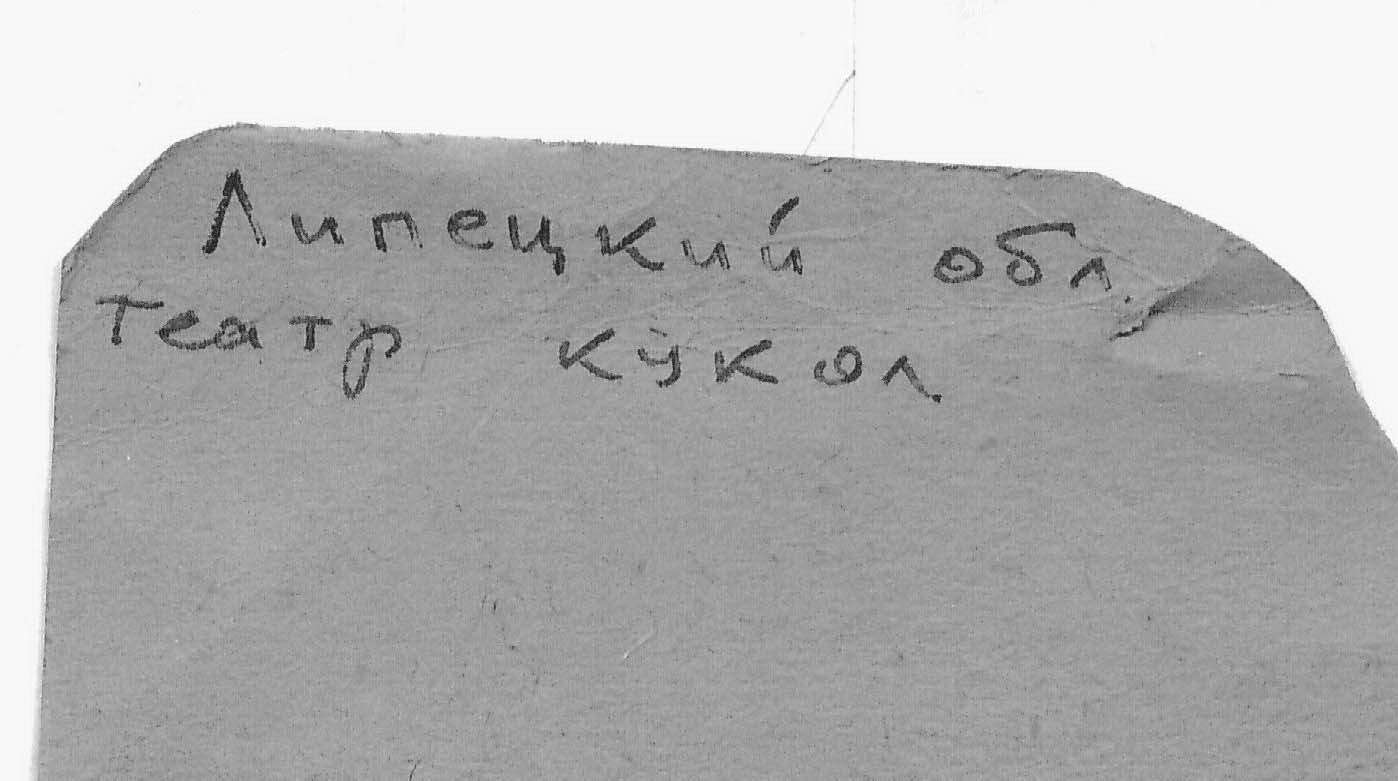 Липецкий обл.
театр кукол.